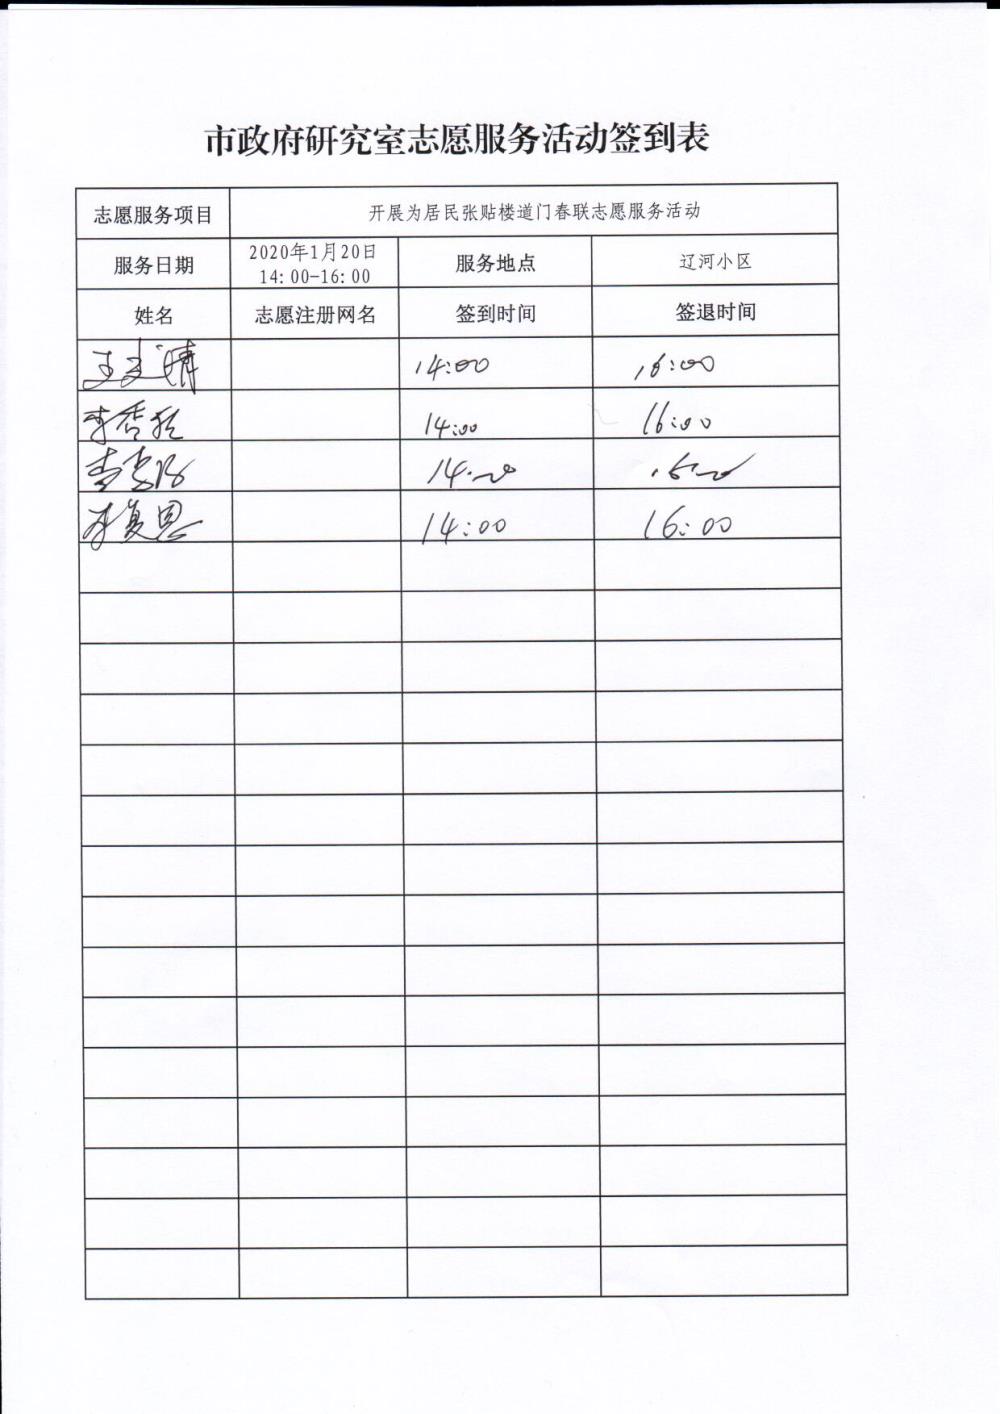 市政府研究室志愿服务活动签到表
志愿服务项目 开展为居民张贴楼道门春联志愿服务活动
服务日期 2020年1月20日 14:00-16:00 服务地点 辽河小区
姓名 志愿注册网名 签到时间 签退时间
14:00 16:00
14:00 16:00
14:00 16:00
李复恩 14:00 16:00